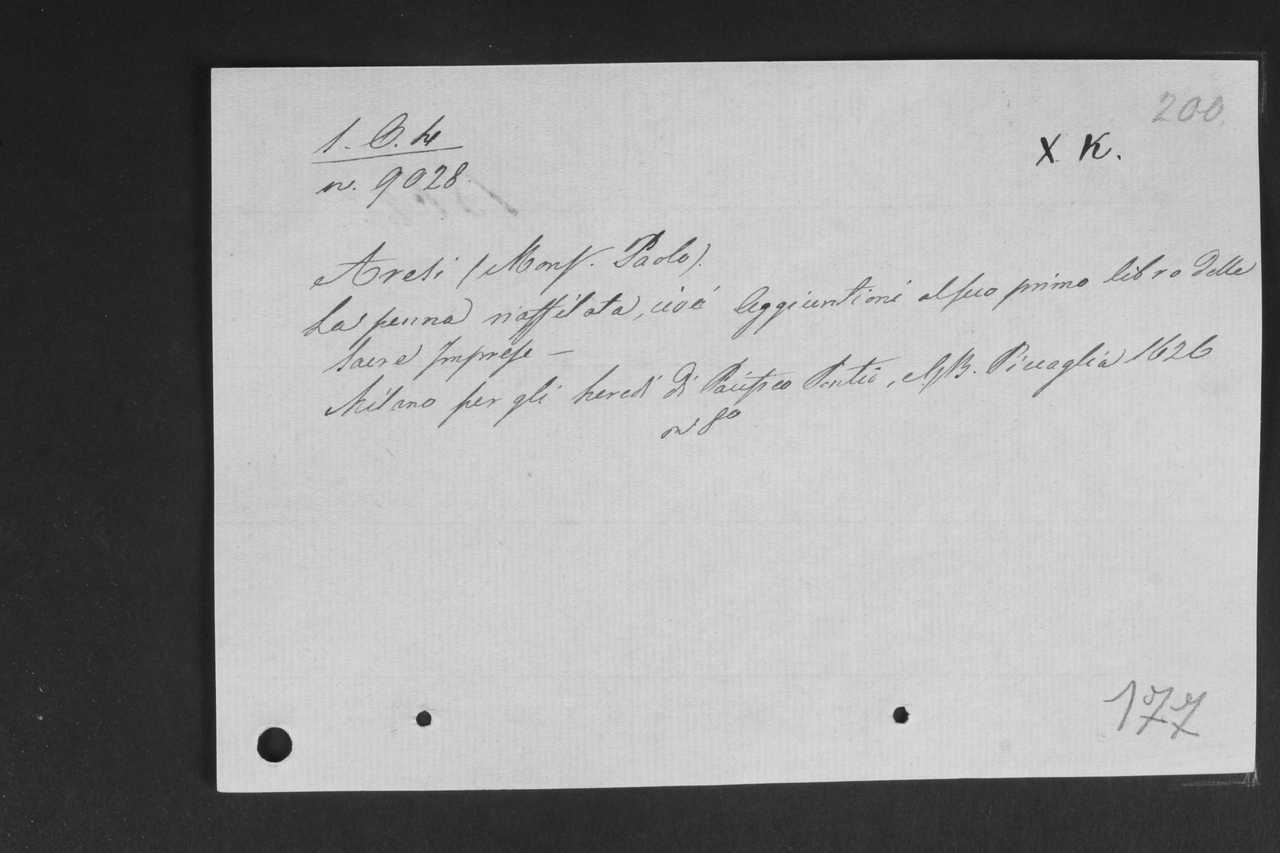 200
1. C. 4
X. K.
n. 9028.
Aresi (Monsr. Paolo).
La penna riaffilata, cioè Aggiuntioni al suo primo libro delle
Sacre Imprese —
Milano per gli heredi di Pacifico Pontio, e G. B. Piccaglia 1626
in 8o
177